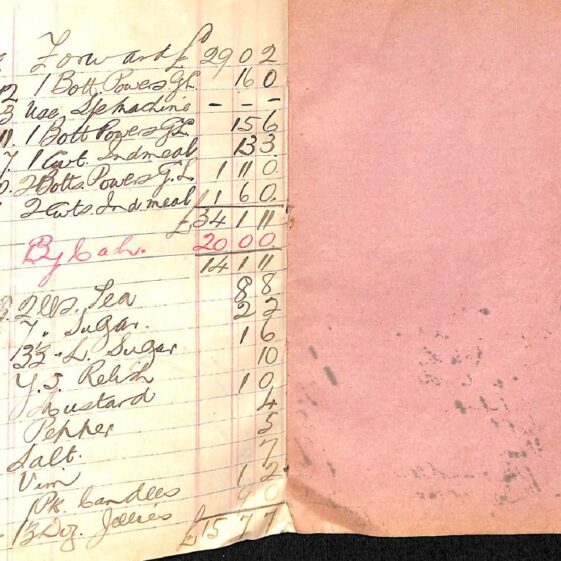 Forward £ 29 0 2
1 Bott. Powers G.L. 16 0
Use Sp Machine - - -
1 Bott Powers G.L. 15 6
1 Cwt. Ind meal 13 3
2 Botts. Powers G.L. 1 11 0
2 Cwts. Ind. meal 1 6 0
£ 34 1 11
By Cash. 20 0 0
14 1 11
2 lbs. Tea 8 8
7 " Sugar. 2 2
L. Sugar 1 6
Y.S. Relish 10
Mustard 1 0
Pepper 4
Salt. 5
Vim 7
1 Pk. Candles 1 2
1½ Doz. Jellies 9 0
£ 15 7 7